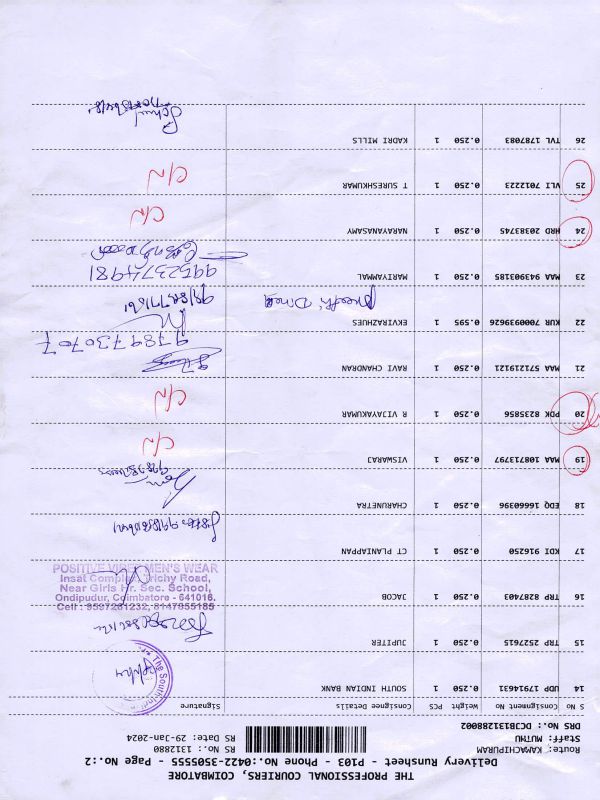 THE PROFESSIONAL COURIERS, COIMBATORE
Delivery Runsheet - P103 - Phone No.:0422-3505555 - Page No.:2
Route: KAMACHIPURAM RS No.: 1312880
Staff: MUTHU RS Date: 29-Jan-2024
DRS No.: DCJB13128802
S No Consignment No Weight PCS Consignee Details Signature
14 UDP 17914631 0.250 1 SOUTH INDIAN BANK
15 TRP 2527615 0.250 1 JUPITER
16 TRP 8287403 0.250 1 JACOB
POSITIVE VIBES MEN'S WEAR
Insat Complex, Trichy Road,
Near Girls Hr. Sec. School,
Ondipudur, Coimbatore - 641016.
Cell : 9597261232, 8147855185
17 KDI 916250 0.250 1 CT PLANIAPPAN
18 EDQ 16660396 0.250 1 CHARUNETRA
19 MAA 108713797 0.250 1 VISWARAJ C/N
20 PDK 8235856 0.250 1 R VIJAYAKUMAR C/N
21 MAA 571219121 0.250 1 RAVI CHANDRAN
9789730707
22 KUR 7000939626 0.595 1 EKVIRAZHUES
23 MAA 943903185 0.250 1 MARIYAMMAL 9952374981
24 HRD 20383745 0.250 1 NARAYANASAMY C/N
25 VLI 7012223 0.250 1 T SURESHKUMAR C/N
26 TVL 1787083 0.250 1 KADRI MILLS